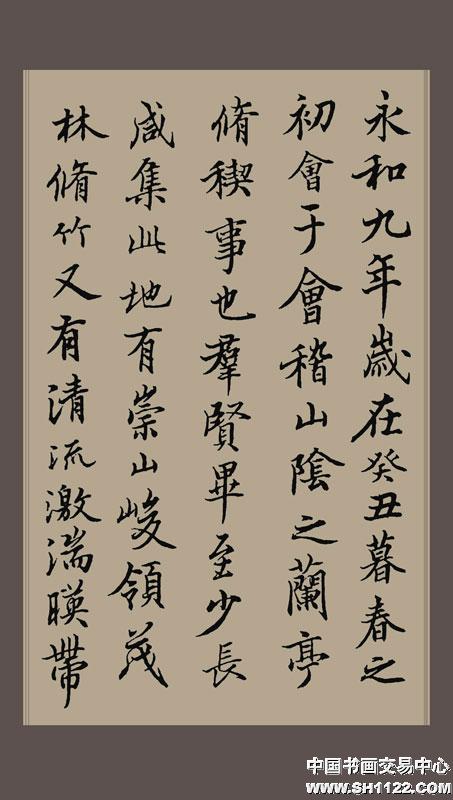 永和九年歲在癸丑暮春之
初會于會稽山陰之蘭亭
脩稧事也羣賢畢至少長
咸集此地有崇山峻領茂
林脩竹又有清流激湍暎帶
中国书画交易中心
www.SH1122.com